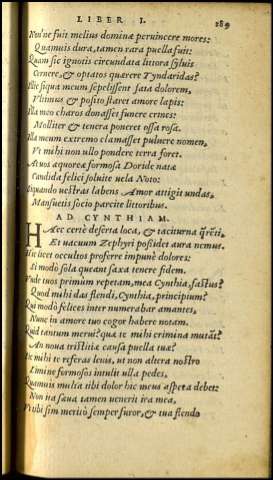 LIBER I. 289
Nonne fuit melius dominæ peruincere mores:
Quamuis dura, tamen rara puella fuit:
Quam sic ignotis circundata littora syluis
Cernere, & optatos quærere Tyndaridas?
Illic siqua meum sepelissent fata dolorem,
Vltimus & posito staret amore lapis:
Illa meo charos donasset funere crines:
Molliter & tenera poneret ossa rosa.
Illa meum extremo clamasset puluere nomen,
Vt mihi non ullo pondere terra foret.
At uos æquoreæ formosa Doride natæ
Candida felici soluite uela Noto:
Siquando uestras labens Amor attigit undas,
Mansuetis socio parcite littoribus.
AD CYNTHIAM.
HAec certè deserta loca, & taciturna q̃reti,
Et uacuum Zephyri possidet aura nemus.
Hic licet occultos proferre impunè dolores:
Si modò sola queant saxa tenere fidem.
Vnde tuos primum repetam, mea Cynthia, fastus?
Quod mihi das flendi, Cynthia, principium?
Qui modò felices inter numerabar amantes,
Nunc in amore tuo cogor habere notam.
Quid tantum merui? quæ te mihi crimina mutãt?
An noua tristitiæ causa puella tuæ?
Sic mihi te referas leuis, ut non altera nostro
Limine formosos intulit ulla pedes.
Quamuis multa tibi dolor hic meus aspera debet:
Non ita sæua tamen uenerit ira mea,
Vt tibi sim meritò semper furor, & tua flendo